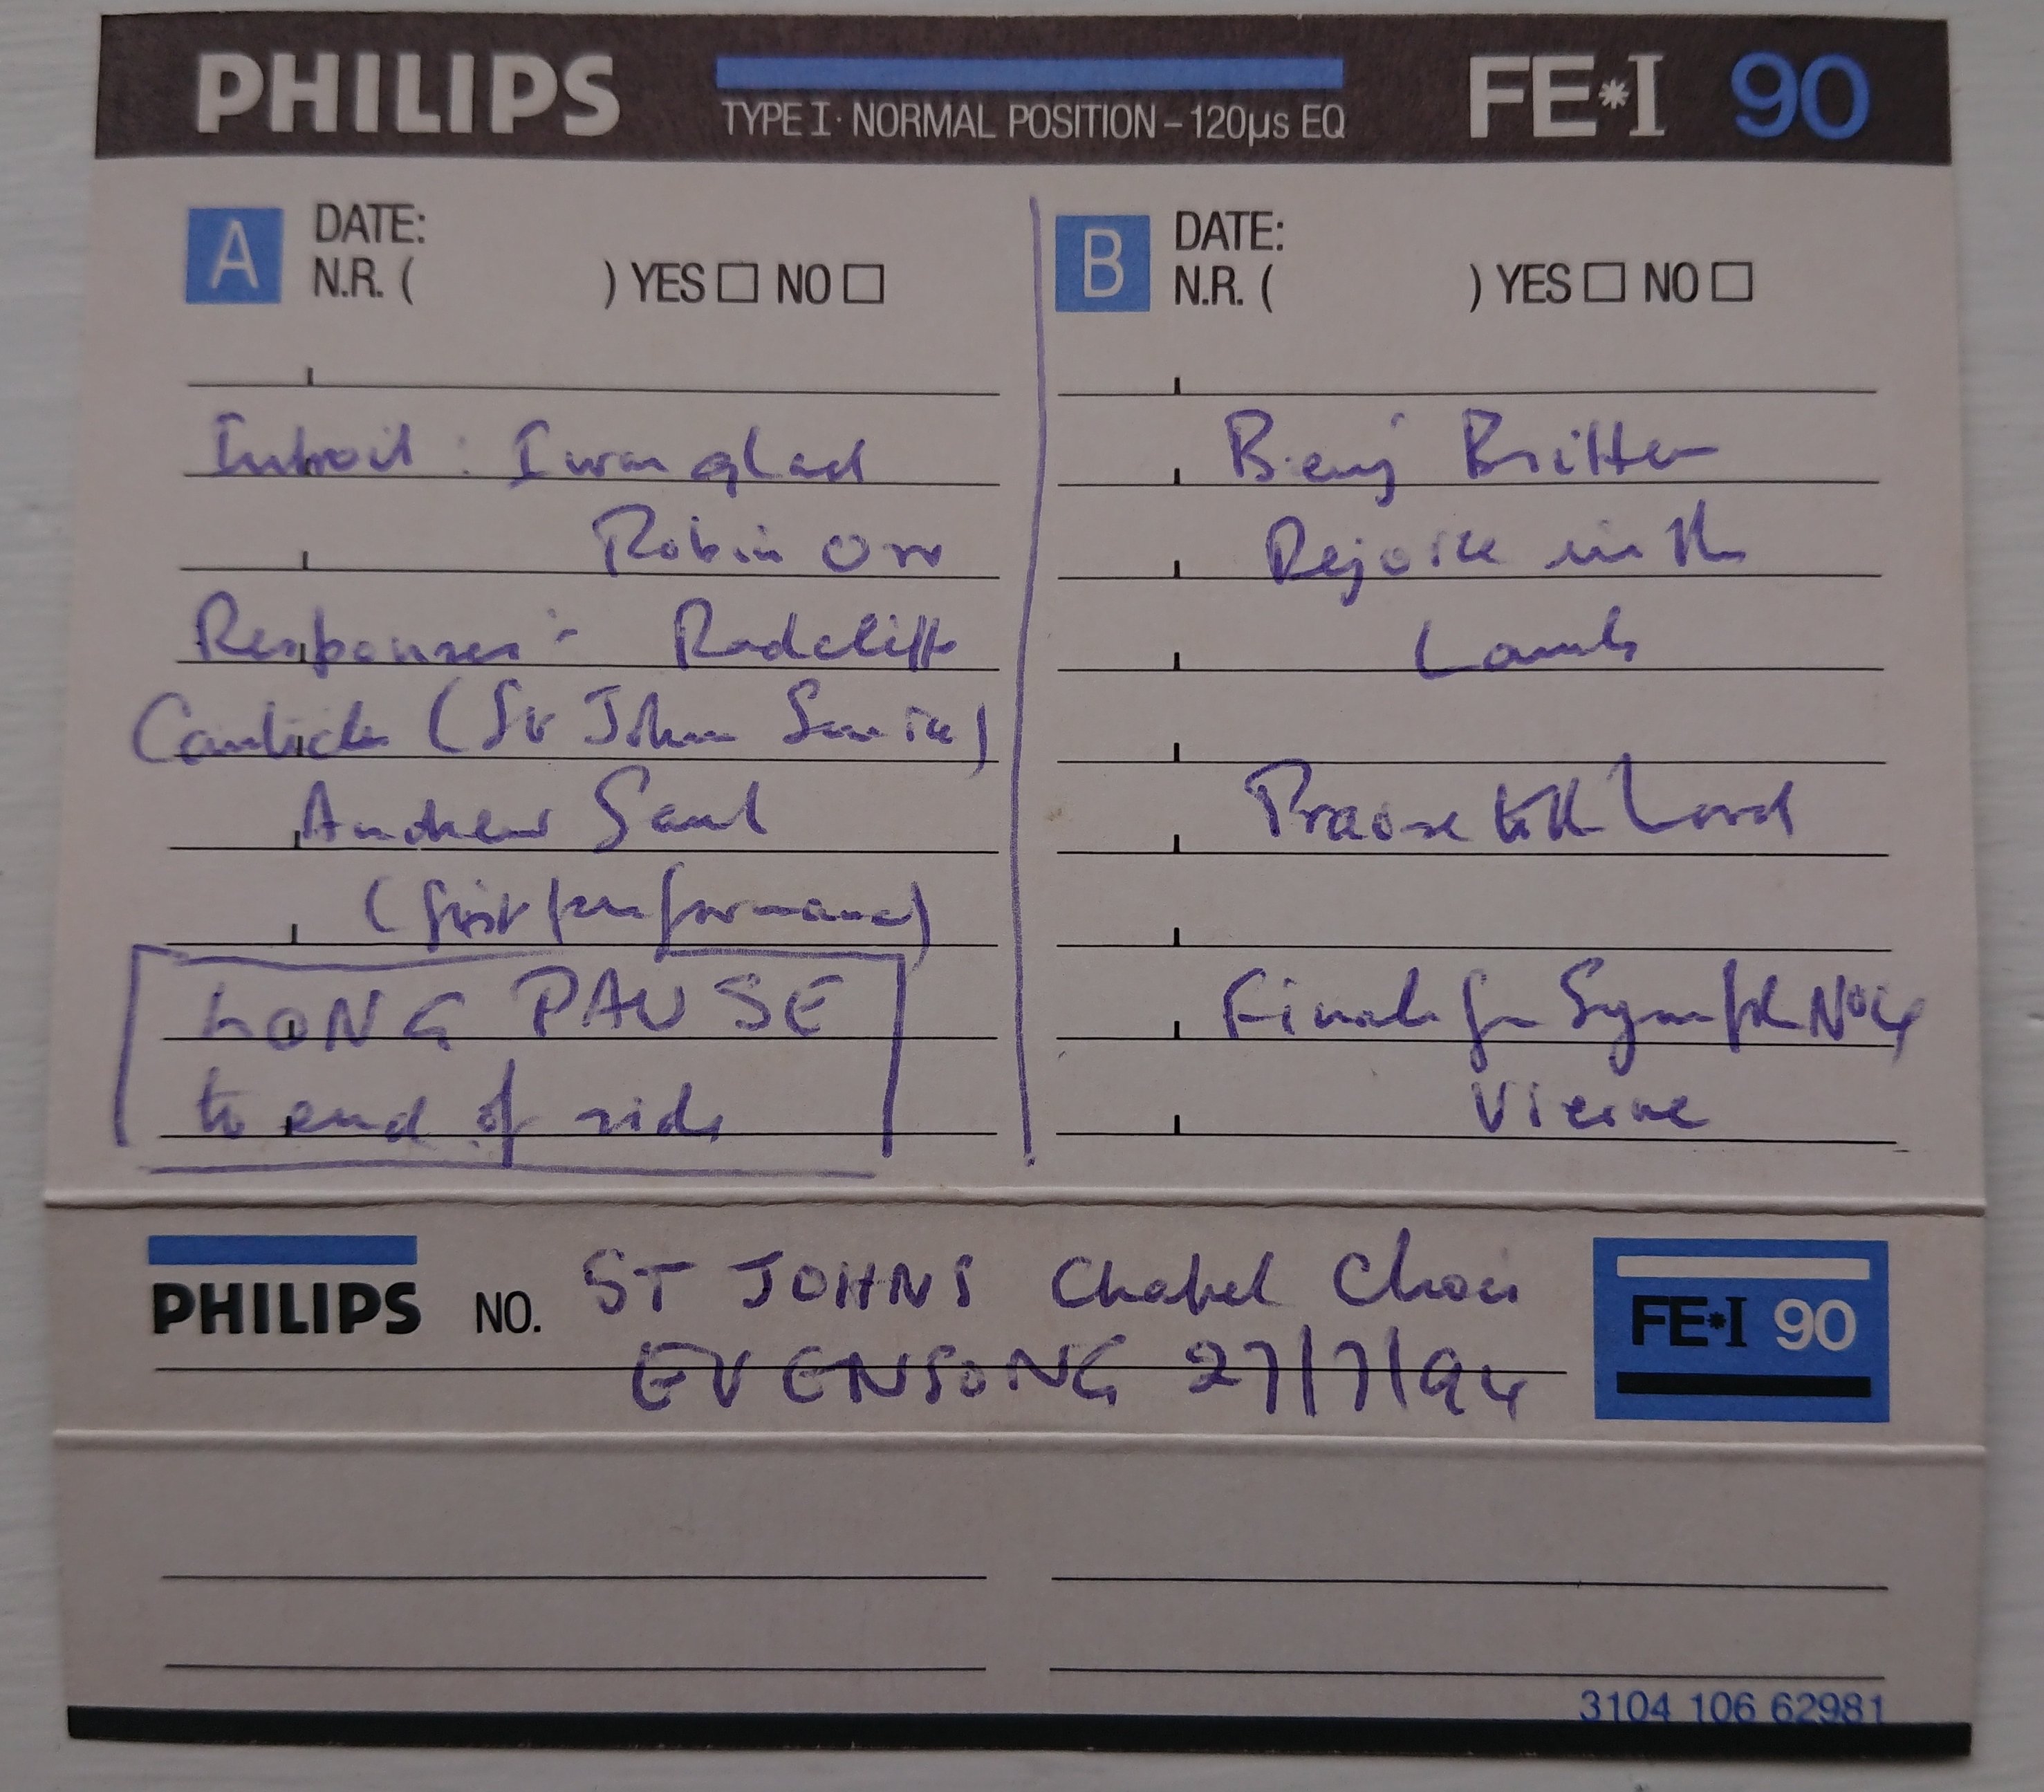 PHILIPS TYPE I · NORMAL POSITION – 120µs EQ FE*I 90
A DATE:
N.R. ( ) YES NO
Introit : I was glad
Robin Orr
Responses :- Radcliffe
Canticles (St John Service)
Andrew Saul
(first performance)
LONG PAUSE
to end of side
B DATE:
N.R. ( ) YES NO
Benj Britten
Rejoice in the
Lamb
Praise to the Lord
Finale fr Symph No 4
Vierne
PHILIPS NO. ST JOHNS Chapel Choir FE*I 90
EVENSONG 27/7/94
3104 106 62981